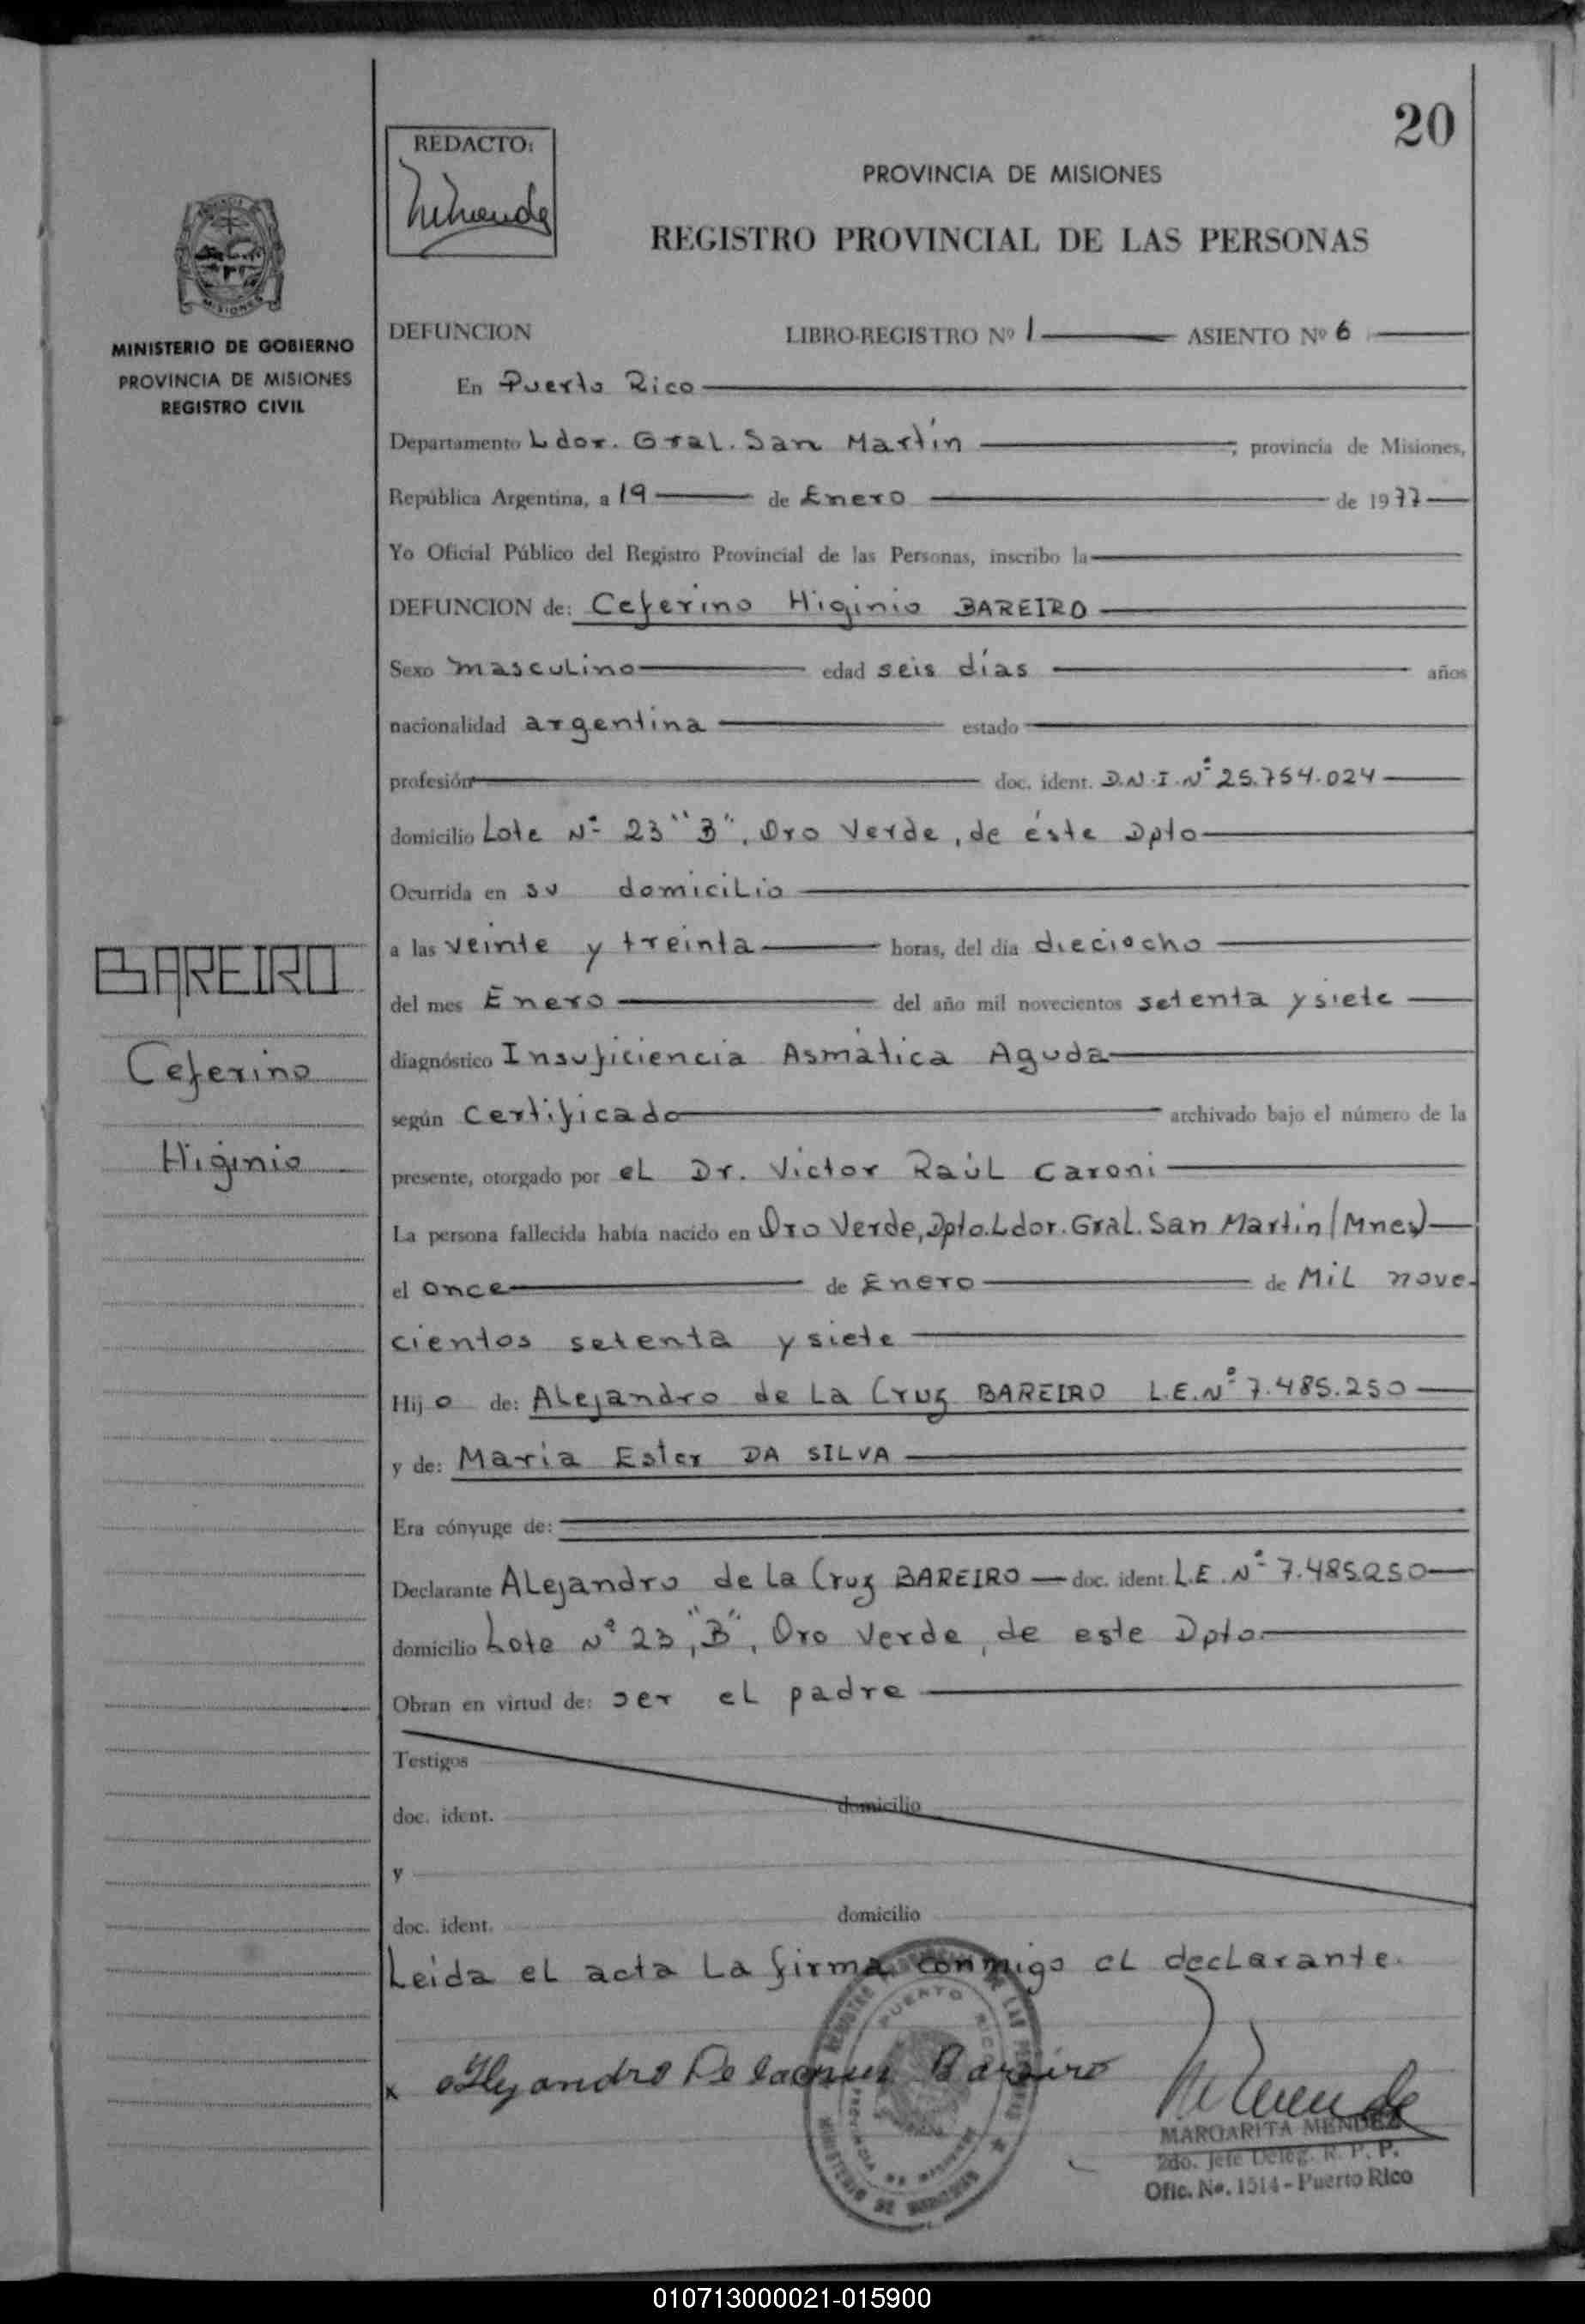 20
REDACTO:
PROVINCIA DE MISIONES
REGISTRO PROVINCIAL DE LAS PERSONAS
MISIONES
MINISTERIO DE GOBIERNO
PROVINCIA DE MISIONES
REGISTRO CIVIL
BAREIRO
Ceferino
Higinio
DEFUNCION LIBRO-REGISTRO Nº 1 ASIENTO Nº 6
En Puerto Rico
Departamento Ldor. Gral. San Martín ; provincia de Misiones,
República Argentina, a 19 de Enero de 1977
Yo Oficial Público del Registro Provincial de las Personas, inscribo la
DEFUNCION de: Ceferino Higinio BAREIRO
Sexo masculino edad seis días años
nacionalidad argentina estado
profesión doc. ident. D.N.I.Nº 25.754.024
domicilio Lote Nº 23 "B", Oro Verde, de éste Dpto
Ocurrida en su domicilio
a las veinte y treinta horas, del día dieciocho
del mes Enero del año mil novecientos setenta y siete
diagnóstico Insuficiencia Asmática Aguda
según Certificado archivado bajo el número de la
presente, otorgado por el Dr. Victor Raúl Caroni
La persona fallecida había nacido en Oro Verde, Dpto. Ldor. Gral. San Martín (Mnes)
el once de Enero de Mil nove-
cientos setenta y siete
Hijo de: Alejandro de la Cruz BAREIRO L.E.Nº 7.485.250
y de: Maria Ester DA SILVA
Era cónyuge de:
Declarante Alejandro de la Cruz BAREIRO doc. ident. L.E.Nº 7.485250
domicilio Lote Nº 23, "B", Oro Verde, de este Dpto.
Obran en virtud de: ser el padre
Testigos
doc. ident. domicilio
y
doc. ident. domicilio
Leida el acta la firma conmigo el declarante.
x Alejandro De lacruz Bareiro
PUERTO RICO
MARGARITA MENDEZ
2do. Jefe Deleg. R. P. P.
Ofic. Nº. 1514 - Puerto Rico
010713000021-015900